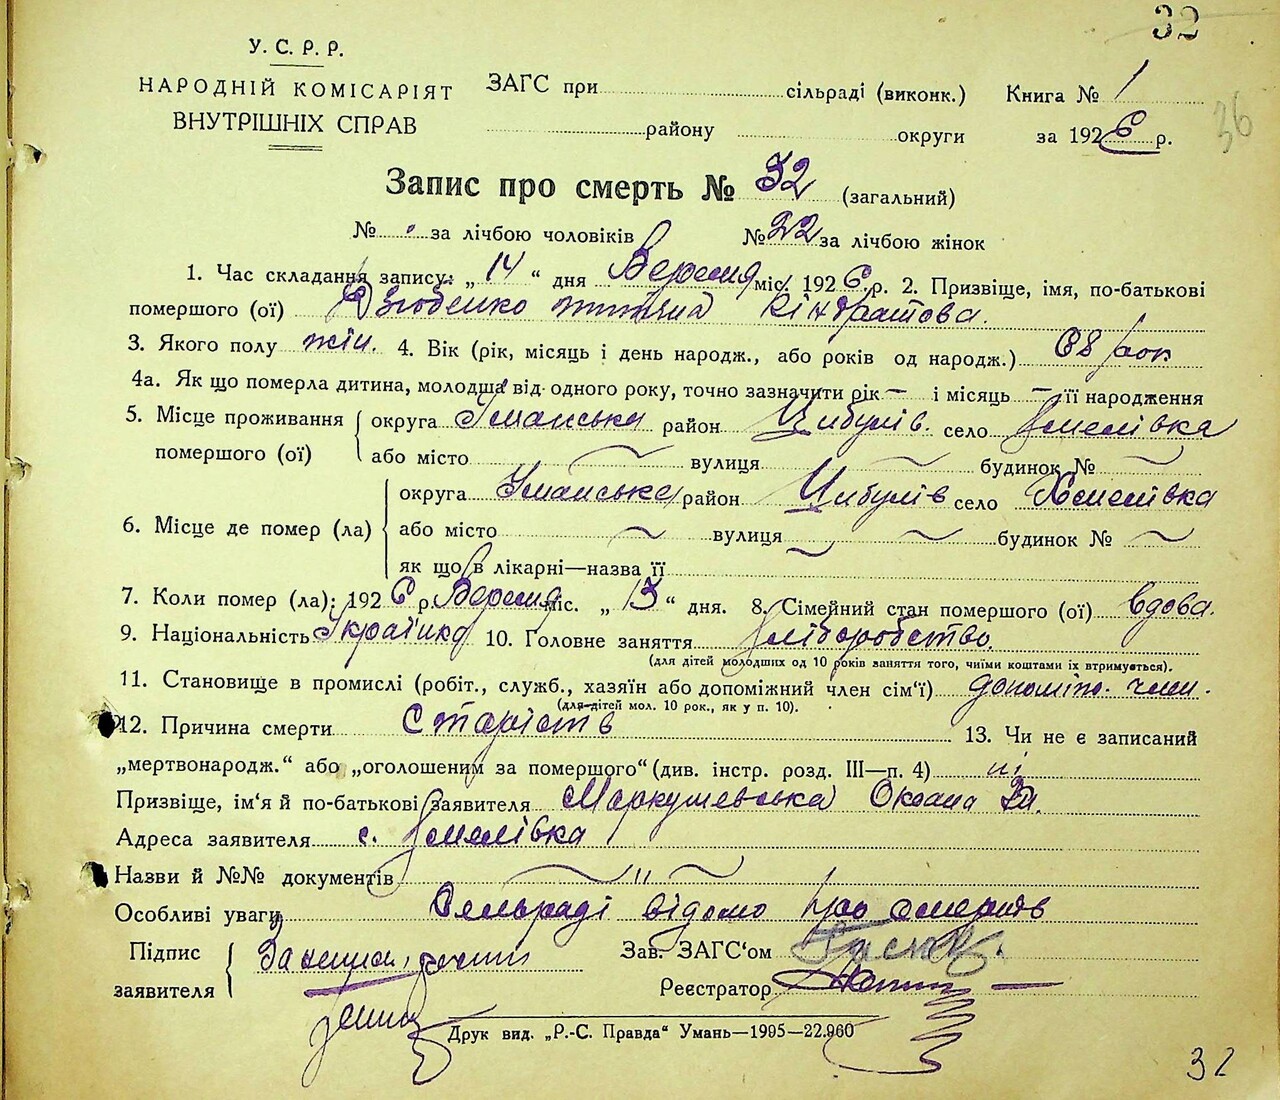 32
У. С. Р. Р.
НАРОДНІЙ КОМІСАРІЯТ
ВНУТРІШНІХ СПРАВ
ЗАГС при сільраді (виконк.) Книга № 1
району округи за 1926 р.
36
Запис про смерть № 32 (загальний)
№ за лічбою чоловіків № 22 за лічбою жінок
1. Час складання запису: „14“ дня Вересня міс. 1926 р. 2. Призвіще, імя, по-батькові
помершого (ої) Дзюбенко Кіндратова.
3. Якого полу жін. 4. Вік (рік, місяць і день народж., або років од народж.) 68 рок
4а. Як що померла дитина, молодша від одного року, точно зазначити рік — і місяць — її народження
5. Місце проживання округа Уманська район Цибулів. село Хмелівка
помершого (ої) або місто вулиця будинок №
6. Місце де помер (ла) округа Уманська район Цибулів село Хмелівка
або місто вулиця будинок №
як що в лікарні—назва її
7. Коли помер (ла): 1926 р. Вересня міс. „13“ дня. 8. Сімейний стан помершого (ої) вдова.
9. Національність Українка 10. Головне заняття хліборобство.
(для дітей молодших од 10 років заняття того, чиїми коштами їх втримується).
11. Становище в промислі (робіт., служб., хазяїн або допоміжний член сім'ї) допоміж. член.
(для дітей мол. 10 рок., як у п. 10).
12. Причина смерти старість 13. Чи не є записаний
„мертвонародж.“ або „оголошеним за помершого“ (див. інстр. розд. III—п. 4) ні
Призвіще, ім'я й по-батькові заявителя Маркушевська Оксана
Адреса заявителя с. Хмелівка
Назви й №№ документів
Особливі уваги Сельраді відомо про смерть
Підпис
заявителя
Зав. ЗАГС'ом
Реєстратор
Друк вид. „Р.-С. Правда“ Умань—1995—22.960
32